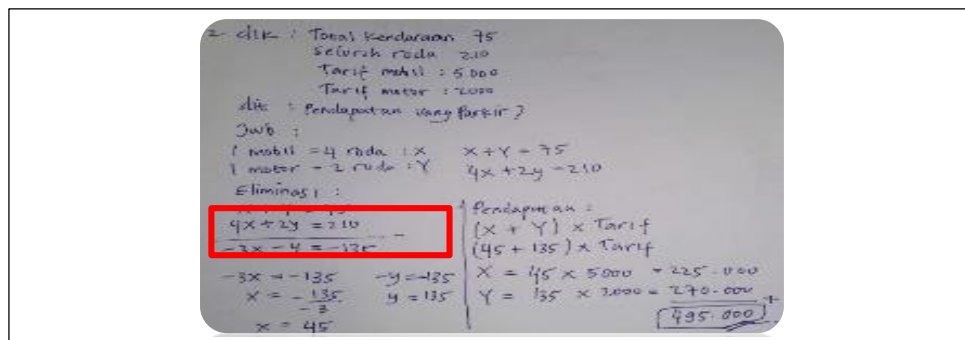 2. dik : Total kendaraan 75
seluruh roda 210
Tarif mobil : 5.000
Tarif motor : 2000
dit : Pendapatan uang Parkir ?
Jwb :
1 mobil = 4 roda : X X + Y = 75
1 motor = 2 roda : Y 4x + 2y = 210
Eliminasi :
4x + 2y = 210
-3x - y = -135
-3x = -135 -y = -135
x = -135/-3 y = 135
x = 45
Pendapatan :
(X + Y) x Tarif
(45 + 135) x Tarif
X = 45 x 5000 = 225.000
Y = 135 x 2.000 = 270.000 +
495.000